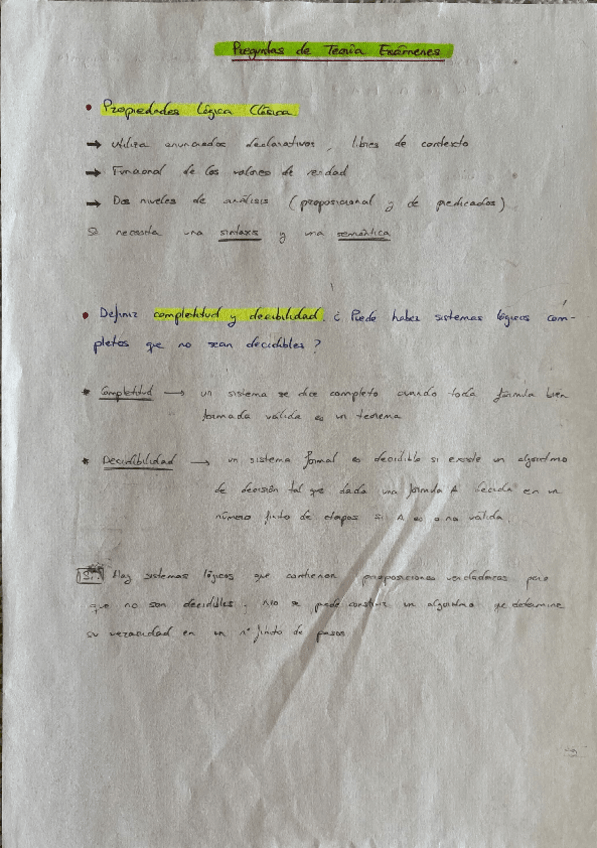 Preguntas de Teoría Exámenes
• Propiedades Lógica Clásica
→ Utiliza enunciados declarativos, libres de contexto
→ Funcional de los valores de verdad
→ Dos niveles de análisis (proposicional y de predicados)
Se necesita una sintaxis y una semántica
• Definir completitud y decibilidad. ¿Puede haber sistemas lógicos com-
pletos que no sean decidibles?
* Completitud → un sistema se dice completo cuando toda fórmula bien
formada válida es un teorema
* Decidibilidad → un sistema formal es decidible si existe un algoritmo
de decisión tal que dada una formula A decida en un
número finito de etapas si A es o no válida.
Sí. Hay sistemas lógicos que contienen proposiciones verdaderas pero
que no son decidibles, no se puede construir un algoritmo que determine
su veracidad en un nº finito de pasos